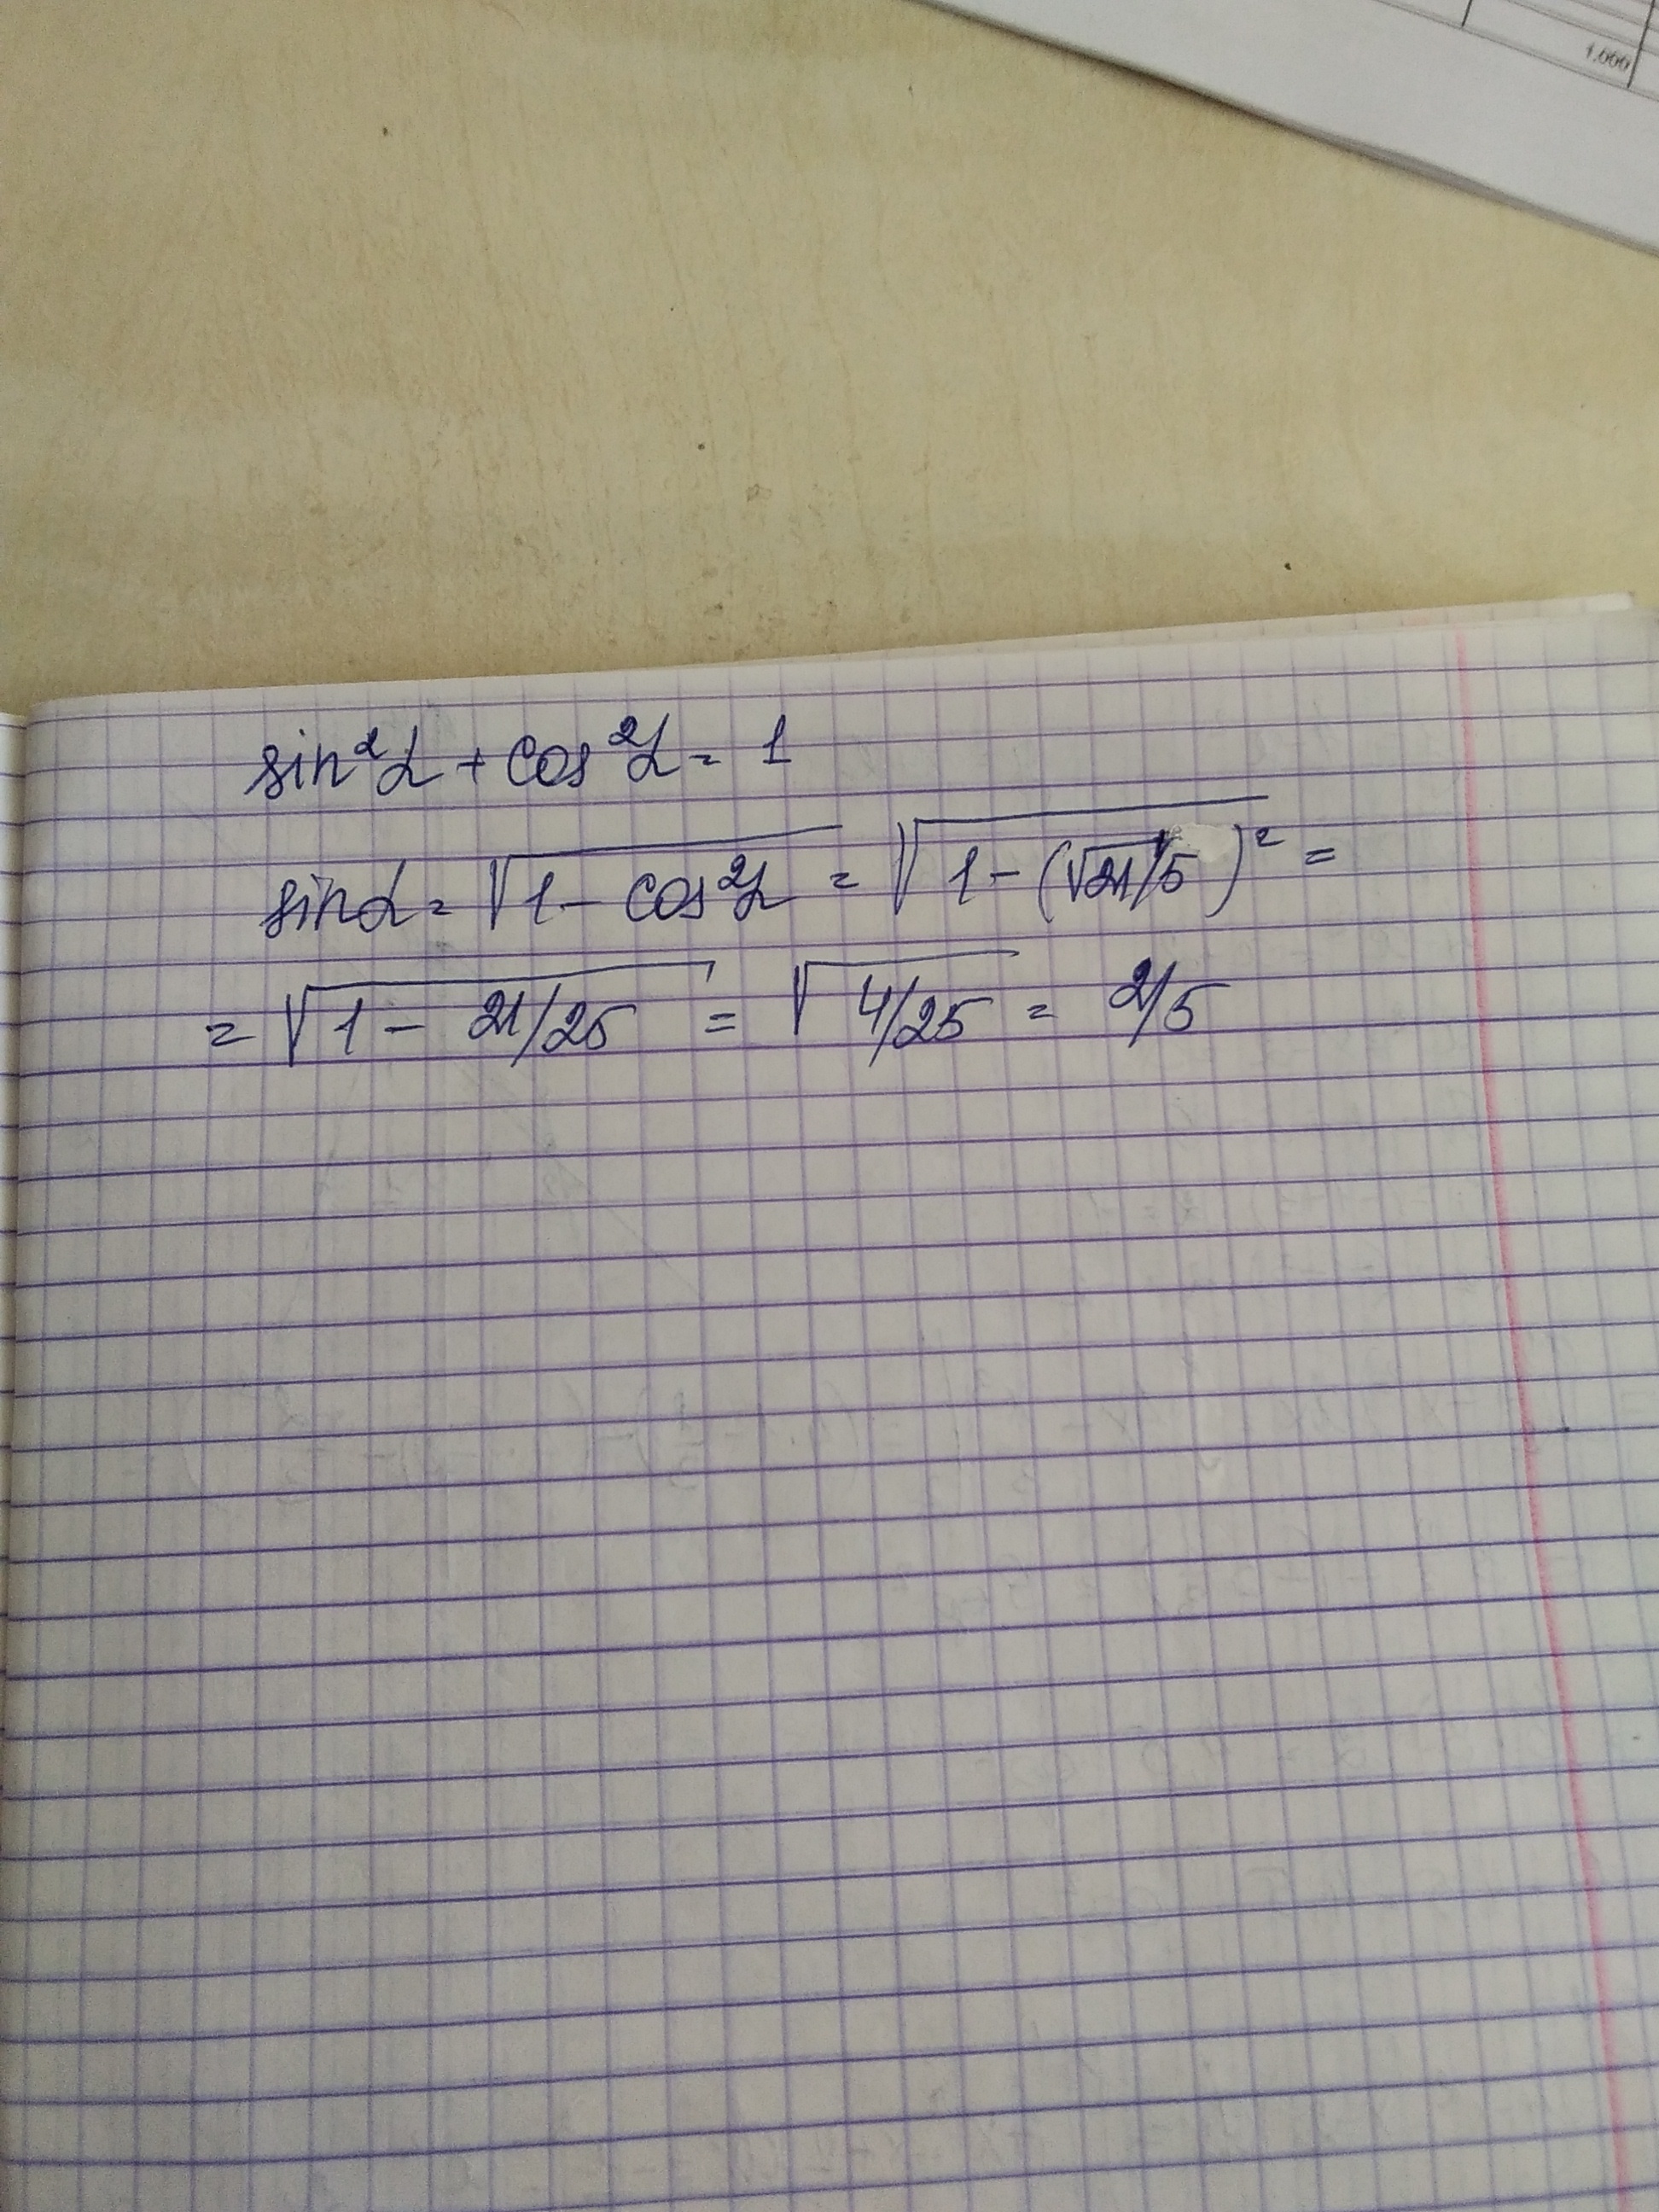 1.000
sin²α + cos²α = 1
sinα = √1 - cos²α = √1 - (√21/5)² =
= √1 - 21/25 = √4/25 = 2/5